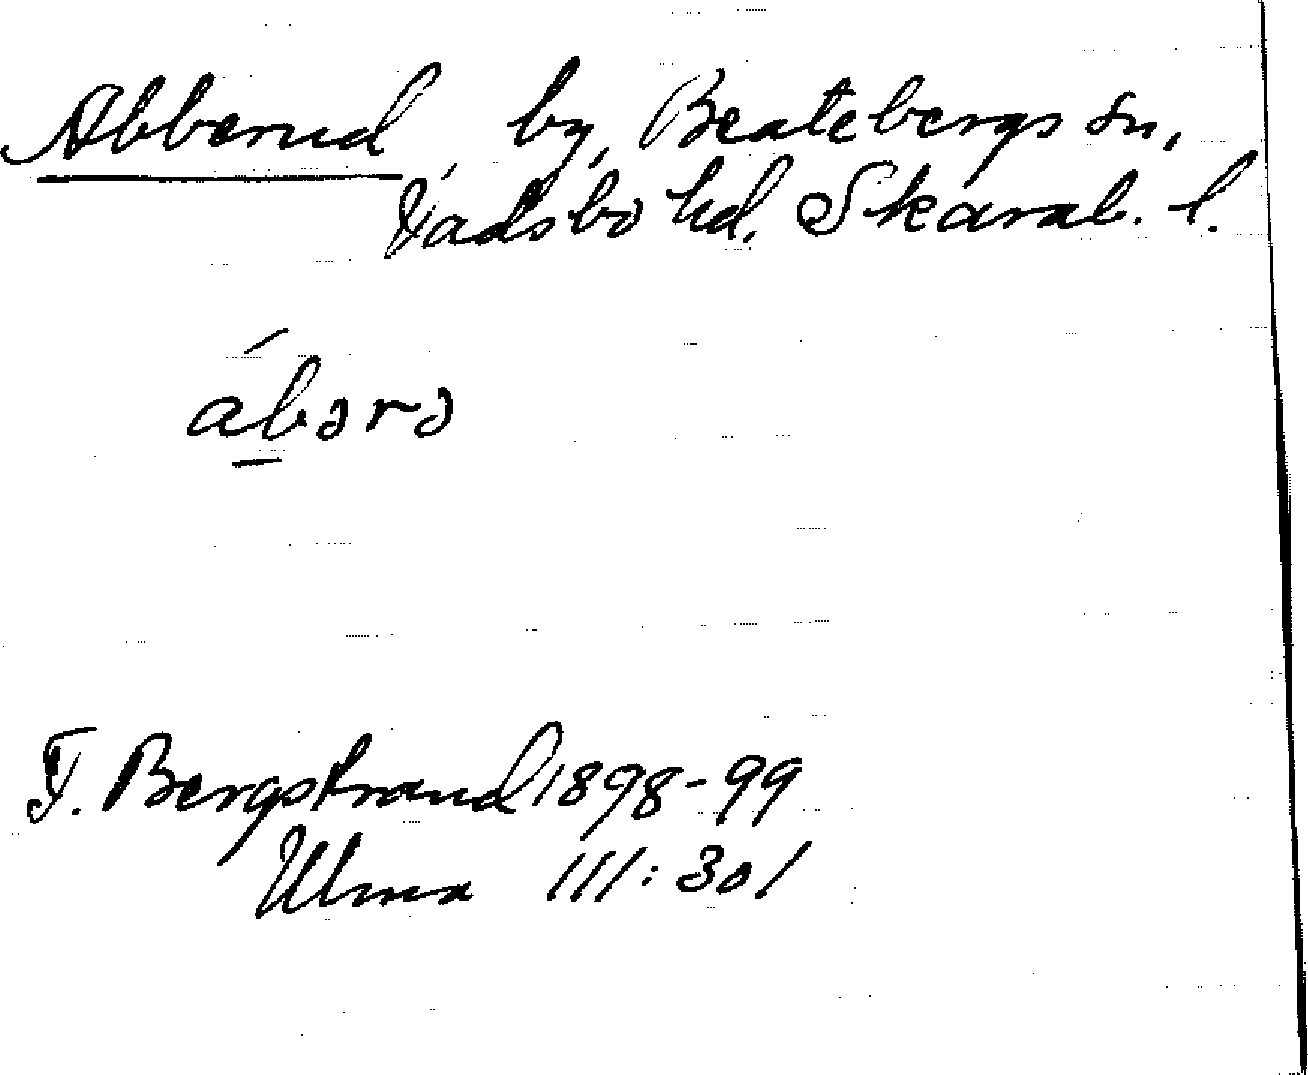 Abberud, by, Beatebergs sn,
Vadsbo hd, Skarab. l.
áb̲ərə
F. Bergstrand 1898-99
Ulma 111:301